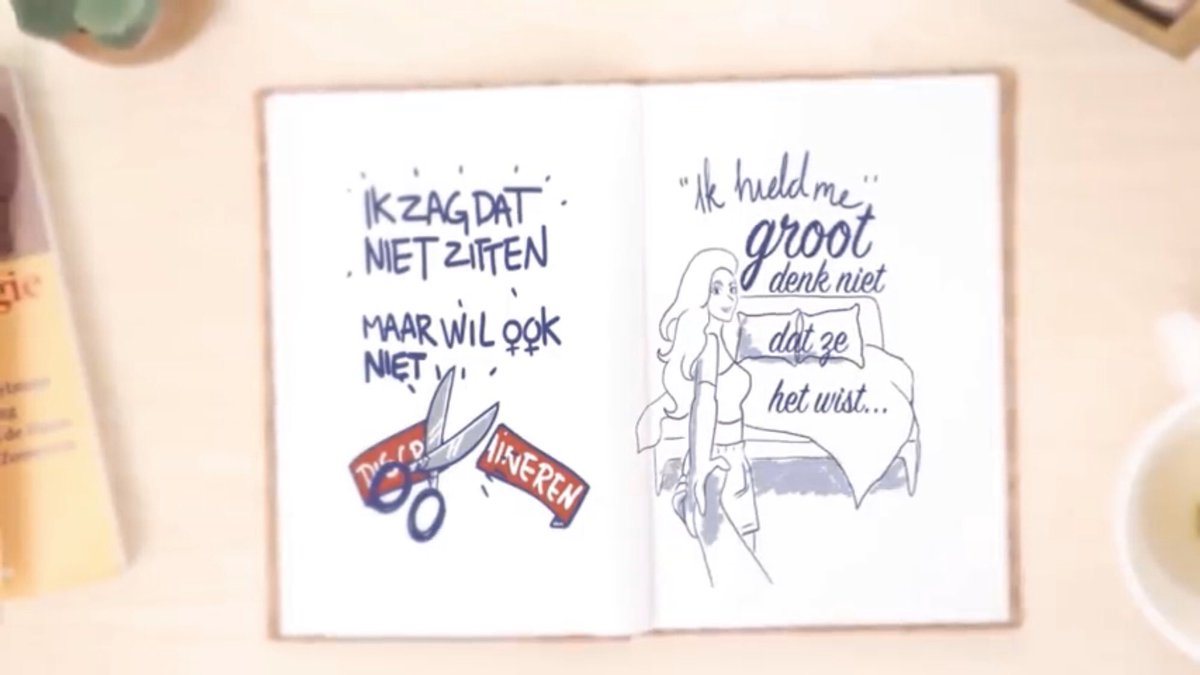 IK ZAG DAT
NIET ZITTEN
MAAR WIL OOK
NIET
"ik hield me"
groot
denk niet
dat ze
het wist...
gie